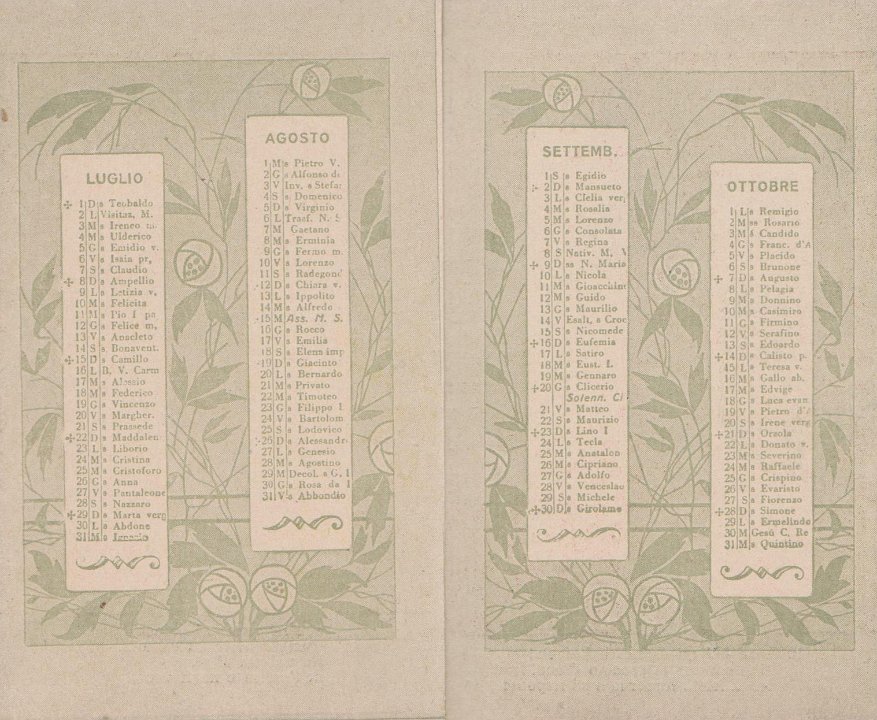 LUGLIO
✢ 1 D s Teobaldo
2 L Visitaz. M.
3 M s Ireneo m.
4 M s Ulderico
5 G s Emidio v.
6 V s Isaia pr,
7 S s Claudio
✢ 8 D s Ampellio
9 L s Letizia v.
10 M s Felicita
11 M s Pio I pa
12 G s Felice m,
13 V s Anacleto
14 S s Bonavent.
✢ 15 D s Camillo
16 L B. V. Carm
17 M s Alessio
18 M s Federico
19 G s Vincenzo
20 V s Margher.
21 S s Prassede
✢ 22 D s Maddalen
23 L s Liborio
24 M s Cristina
25 M s Cristoforo
26 G s Anna
27 V s Pantaleone
28 S s Nazzaro
✢ 29 D s Marta verg
30 L s Abdone
31 M s Ignazio
AGOSTO
1 M s Pietro V.
2 G s Alfonso de
3 V Inv. s Stefa
4 S s Domenico
5 D s Virginio
6 L Trasf. N. S
7 M Gaetano
8 M s Erminia
9 G s Fermo m.
10 V s Lorenzo
11 S s Radegond
12 D s Chiara v.
13 L s Ippolito
14 M s Alfredo
15 M Ass. M. S.
16 G s Rocco
17 V s Emilia
18 S s Elena imp
19 D s Giacinto
20 L s Bernardo
21 M s Privato
22 M s Timoteo
23 G s Filippo
24 V s Bartolom
25 S s Lodovico
26 D s Alessandro
27 L s Genesio
28 M s Agostino
29 M Decol. s G.
30 G s Rosa da
31 V s Abbondio
SETTEMB.
1 S s Egidio
2 D s Mansueto
3 L s Clelia verg
4 M s Rosalia
5 M s Lorenzo
6 G s Consolata
7 V s Regina
8 S Nativ. M. V
✢ 9 D ss N. Maria
10 L s Nicola
11 M s Gioacchino
12 M s Guido
13 G s Maurilio
14 V Esalt. s Croc
15 S s Nicomede
✢ 16 D s Eufemia
17 L s Satiro
18 M s Eust. I.
19 M s Gennaro
✢ 20 G s Clicerio
Solenn. Ci
21 V s Matteo
22 S s Maurizio
✢ 23 D s Lino I
24 L s Tecla
25 M s Anatalon
26 M s Cipriano
27 G s Adolfo
28 V s Venceslao
29 S s Michele
✢ 30 D s Girolamo
OTTOBRE
1 L s Remigio
2 M ss Rosario
3 M s Candido
4 G s Franc. d'A
5 V s Placido
6 S s Brunone
✢ 7 D s Augusto
8 L s Pelagia
9 M s Donnino
10 M s Casimiro
11 G s Firmino
12 V s Serafino
13 S s Edoardo
✢ 14 D s Calisto p.
15 L s Teresa v.
16 M s Gallo ab.
17 M s Edvige
18 G s Luca evan
19 V s Pietro d'A
20 S s Irene verg
✢ 21 D s Orsola
22 L s Donato v.
23 M s Severino
24 M s Raffaele
25 G s Crispino
26 V s Evaristo
27 S s Fiorenzo
✢ 28 D s Simone
29 L s Ermelinde
30 M Gesù C. Re
31 M s Quintino